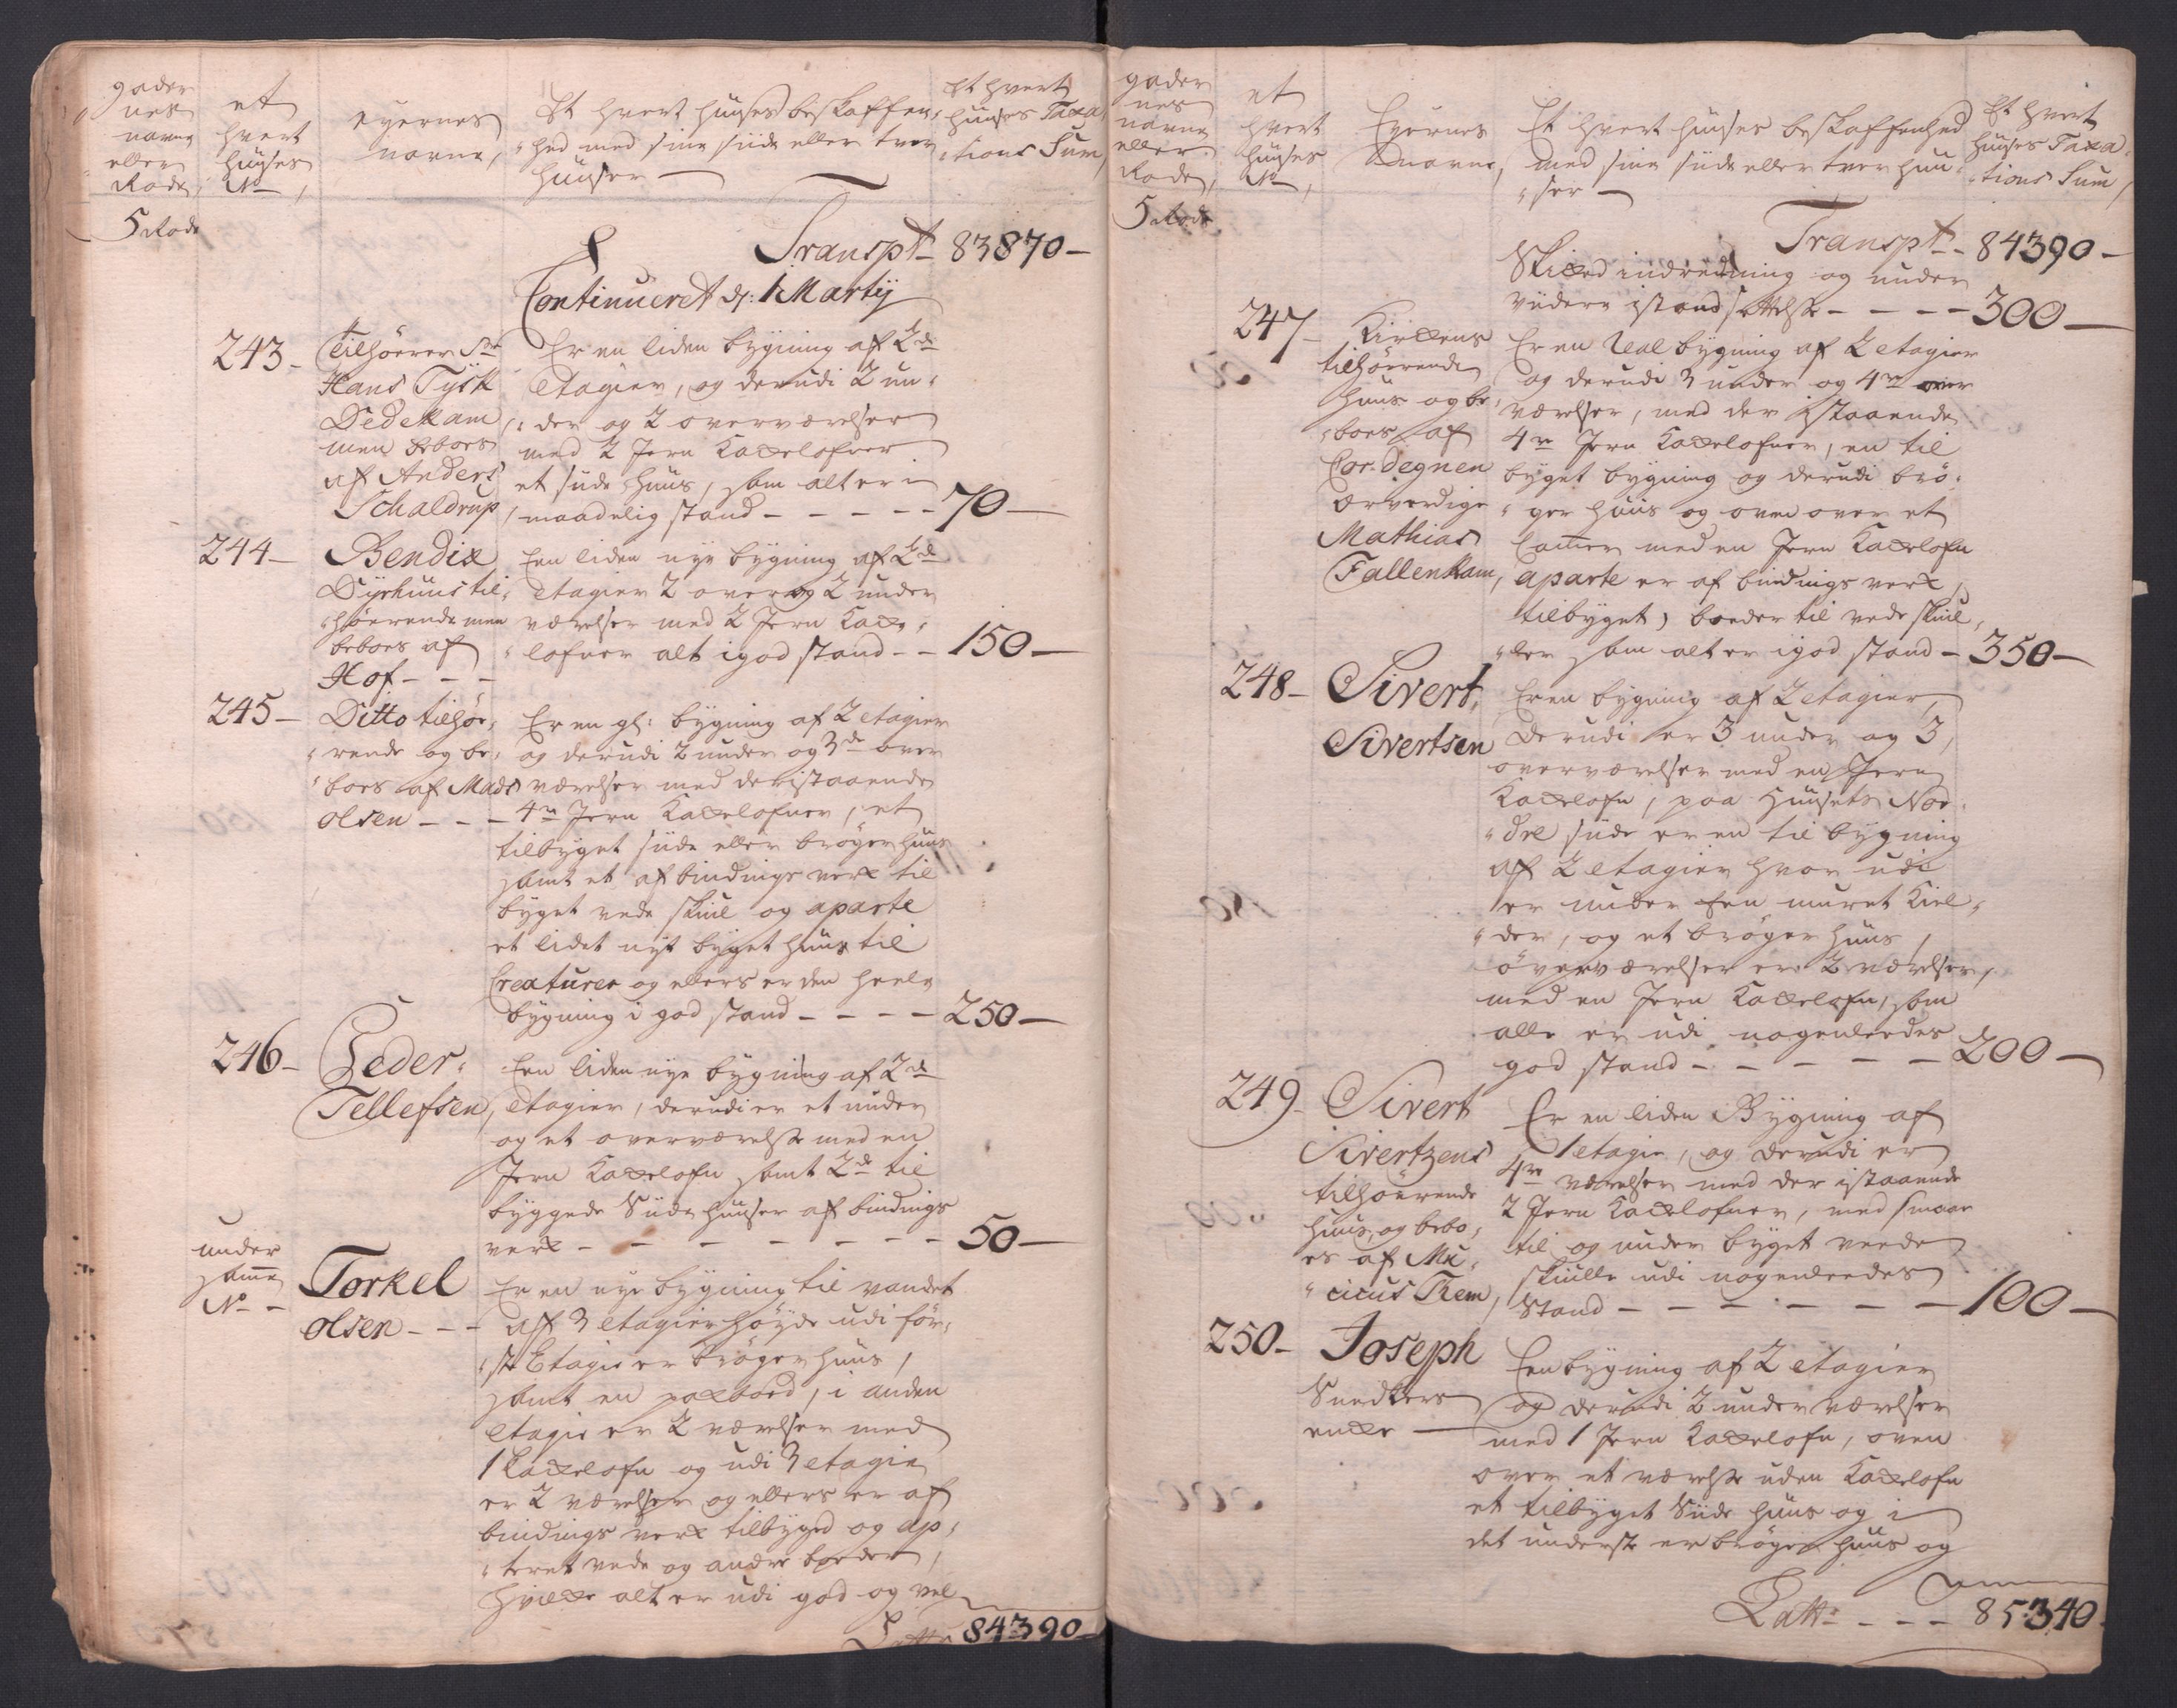 gader
nes
navne
eller
Rode,
et
hvert
huuses
No
eyernes
navne,
Et hvert huuses beskaffen,
"hed med sine siide eller tver
huuser —
Et hvert
huuses Taxa,
"tions Sum,
5 Rode
Transpt — 83870 —
Continueret d: 1 Martij
243 —
Tilhöerer Sr
Hans Tysk
Dedekam,
men beboes
af Anders
Schaldrup,
Er en liden bygning af 2de
Etagier, og derudi 2 un,
"der og 2 overværelser
med 2 Jern Kaxelofner
et siide huus, som alt er i
maadelig stand — — — — — 70 —
244 —
Bendix
Dyrhuus til,
"höerende men
beboes af
Hof — — —
Een liden nye bygning af 2de
etagier 2 over og 2 under
værelser med 2 Jern Kaxe,
"lofner alt i god stand — — 150 —
245 —
Ditto tilhör,
"rende og be,
"boes af Mads
olsen — — —
Er en gl: bygning af 2 etagier
og derudi 2 under og 3de over
værelser med deristaaende
4re Jern Kaxelofner, et
tilbyget siide eller bröger huus
samt et af bindings verk til
byget vede skiul og aparte
et lidet nyt byget huus til
Creaturer og ellers er den heele
bygning i god stand — — — — 250 —
246 —
Peder
Tellefsen,
Een liden nye bygning af 2de
etagier, derudi er et under
og et overværelse med en
Jern Kaxelofn samt 2de til
byggede Siide huuser af bindings
verk — — — — — — — 50 —
under
samme
No —
Torkel
olsen — — —
Er en nye bygning til vandet
af 3 etagier höyde udi för,
"ste Etagie er bröger huus,
samt en paxboed, i anden
etagie er 2 værelser med
1 Kaxelofn og udi 3 etagie
er 2 værelser og ellers er af
bindings verk tilbyged og ap,
"teret vede og andre boeder,
hvilke alt er udi god og vel
Latt: 84390 —
gader
nes
navne
eller
Rode,
et
hvert
huuses
No,
Eyernes
navne,
Et hvert huuses beskaffenhed
med sine siide eller tver huu,
"ser —
Et hvert
huuses Taxa,
"tions Sum,
5 Rode
Transpt — 84390 —
Skiked indredning og under
viidere istandsættelse — — — — 300 —
247 —
Kirkens
tilhöerende
huus og be,
"boes af
Cor-degnen
ærverdige
Mathias
Fallenkam,
Er en Ual bygning af 2 etagier
og derudi 3 under og 4re over
værelser, med der istaaende
4re Jern Kaxelofner, en til
byget bygning og derudi brö,
"ger huus og oven over et
Camer med en Jern Kaxelofn
aparte er af bindings verk,
tilbyget, boeder til vede skiul,
"ler som alt er i god stand — 350 —
248 —
Sivert,
Sivertsen
Er en bygning af 2 etagier,
derudi er 3 under og 3,
overværelser med en Jern
Kaxelofn, paa Huusets Nor,
"dre siide er en til bygning
af 2 etagier hvor udi
er under een muret Kiel,
"der, og et bröger huus,
överværelser er 2 værelser,
med en Jern Kaxelofn, som
alle er udi nogenleedes
god stand — — — — — 200 —
249 —
Sivert
Sivertzens
tilhöerende
huus, og bebo,
es af Mu,
"cicus Rem,
Er en liden Bygning af
1 etagie, og derudi er
4re værelser med der istaaende
2 Jern Kaxelofner, med smaae
til og under byget veede
skiulle udi nogenleedes
Stand — — — — — — 100 —
250 —
Joseph
Snedkers
enke —
Een bygning af 2 etagier
og derudi 2 under værelser
med 1 Jern Kaxelofn, oven
over et værelse uden Kaxelofn
et tilbyget Siide huus og i
det underste er bröger huus og
Latt: — — — 85340